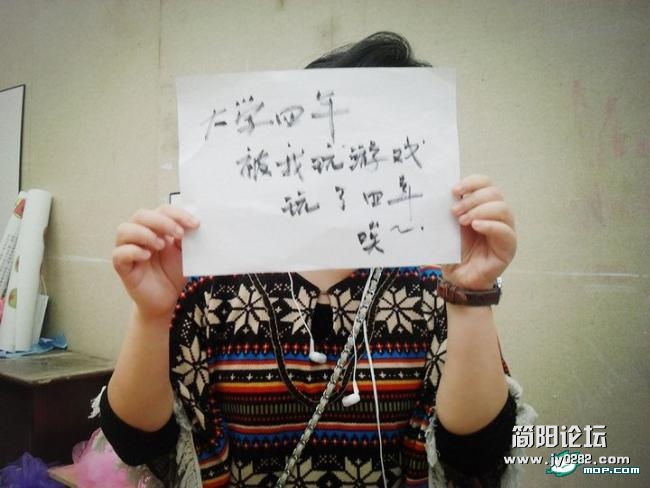 大学四年
被我玩游戏
玩了四年
唉~.
简阳论坛
www.jy0282.com
MOP.COM